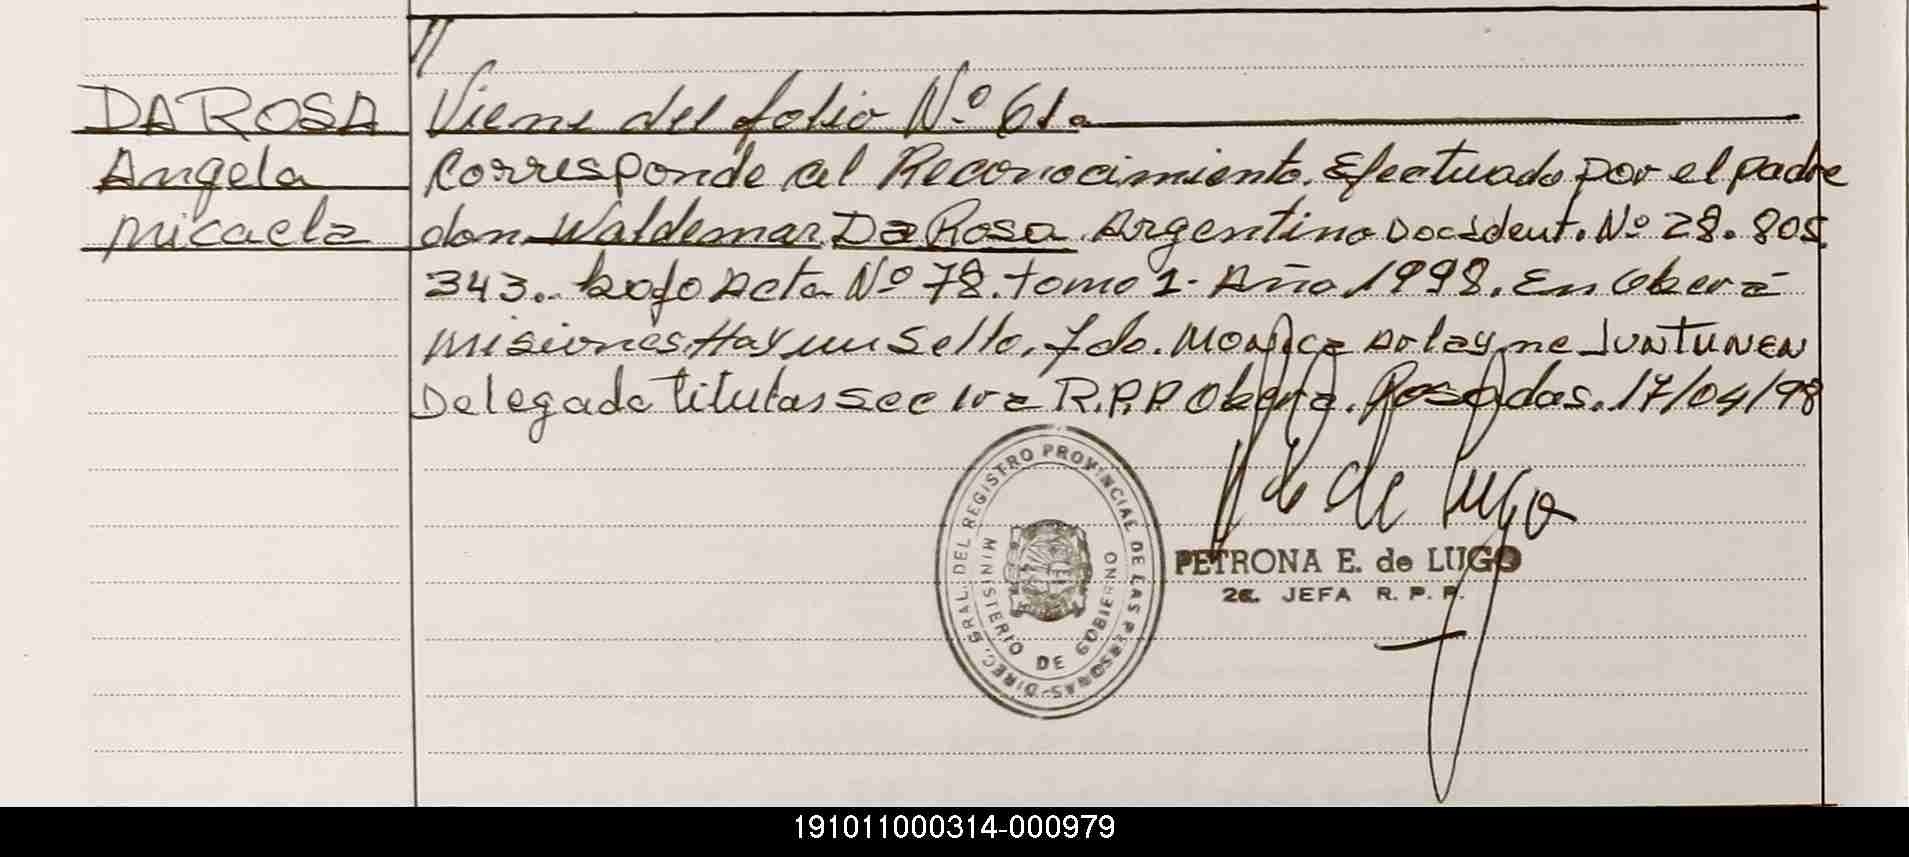 //
DA ROSA
Angela
Micaela
Viene del folio Nº 61.
Corresponde al Reconocimiento. Efectuado por el padre
don Waldemar Da Rosa Argentino Doc Ident. Nº 28.805.
343. bajo Acta Nº 78. tomo 1. Año 1998. En Oberá
Misiones Hay un Sello. Fdo. Monica Arlayne JUNTUNEN
Delegada titular Sec 1ra R.P.P Oberá. Posadas. 17/04/98
DIREC. GRAL. DEL REGISTRO PROVINCIAL DE LAS PERSONAS
MINISTERIO DE GOBIERNO
de Lugo
PETRONA E. de LUGO
2ª. JEFA R. P. P.
191011000314-000979